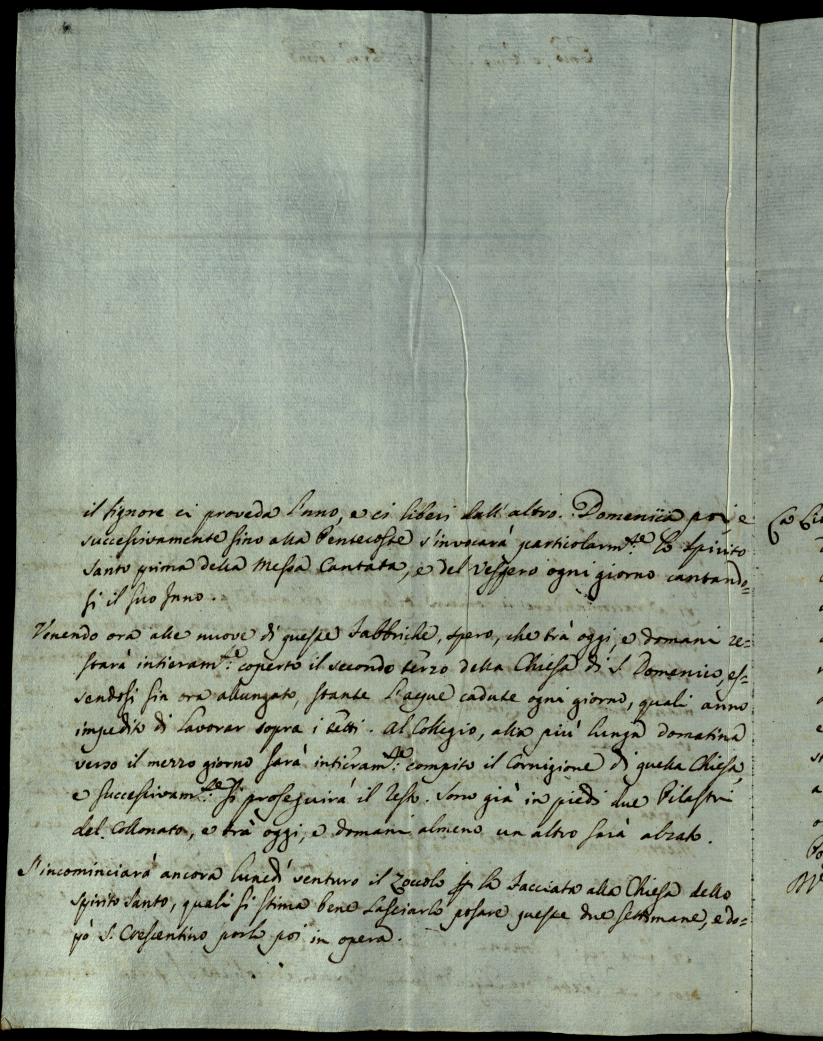 il Signore ci proveda l'uno, e ci liberi dall'altro. Domenica poi, e
successivamente sino alla Pentecoste s'invocarà particolarm.te lo Spirito
Santo prima della Messa Cantata, e del Vespero ogni giorno cantando=
si il suo Inno.
Venendo ora alle nuove di queste Fabbriche, spero, che trà oggi, e domani re=
starà intieram.te coperto il secondo terzo della Chiesa di S. Domenico, es=
sendosi fin ora allungato, stante l'aque cadute ogni giorno, quali anno
impedito di lavorar sopra i tetti. Al Collegio, alla più lunga domatina
verso il mezzo giorno sarà intieram.te compito il Cornigione di quella Chiesa,
e successivam.te si proseguirà il resto. Sono già in piedi due Pilastri
del Collonato, e trà oggi, e domani almeno un altro sarà alzato.
S'incominciarà ancora lunedì venturo il Zocolo per la Facciata alla Chiesa dello
Spirito Santo, quali si stima bene lasciarlo posare queste due settimane, e do=
pò S. Crescentino porlo poi in opera.